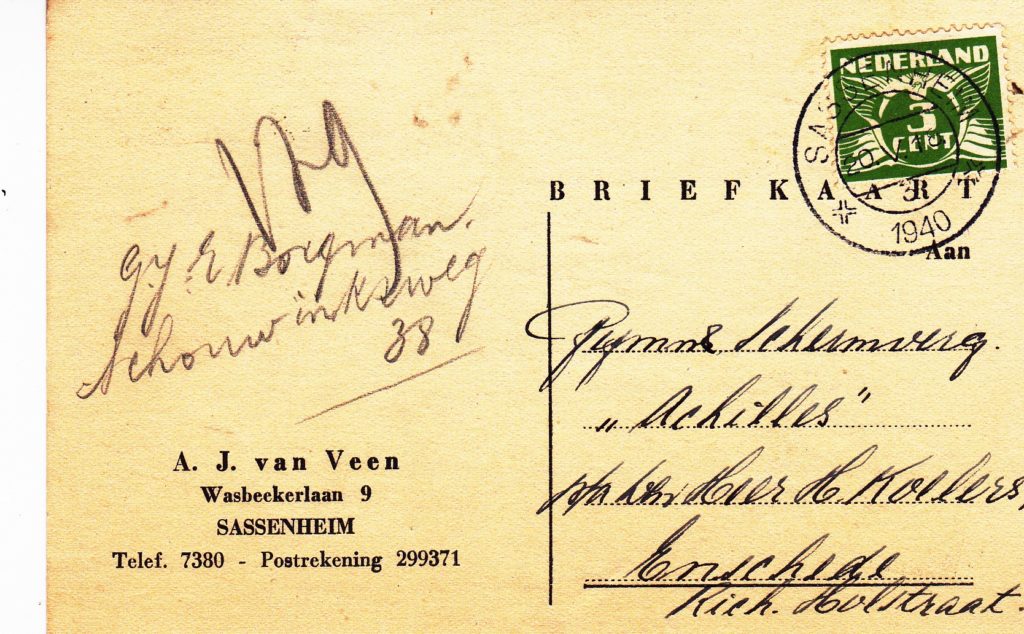 NEDERLAND
3
CENT
SASSENHEIM
1940
BRIEFKAART
Aan
G.J.E Borgman.
Schouwinksweg
38
Gymn. Schermverg.
„Achilles"
p/a den Heer H. Koelers,
Enschede
Rich. Holstraat.
A. J. van Veen
Wasbeekerlaan 9
SASSENHEIM
Telef. 7380 - Postrekening 299371